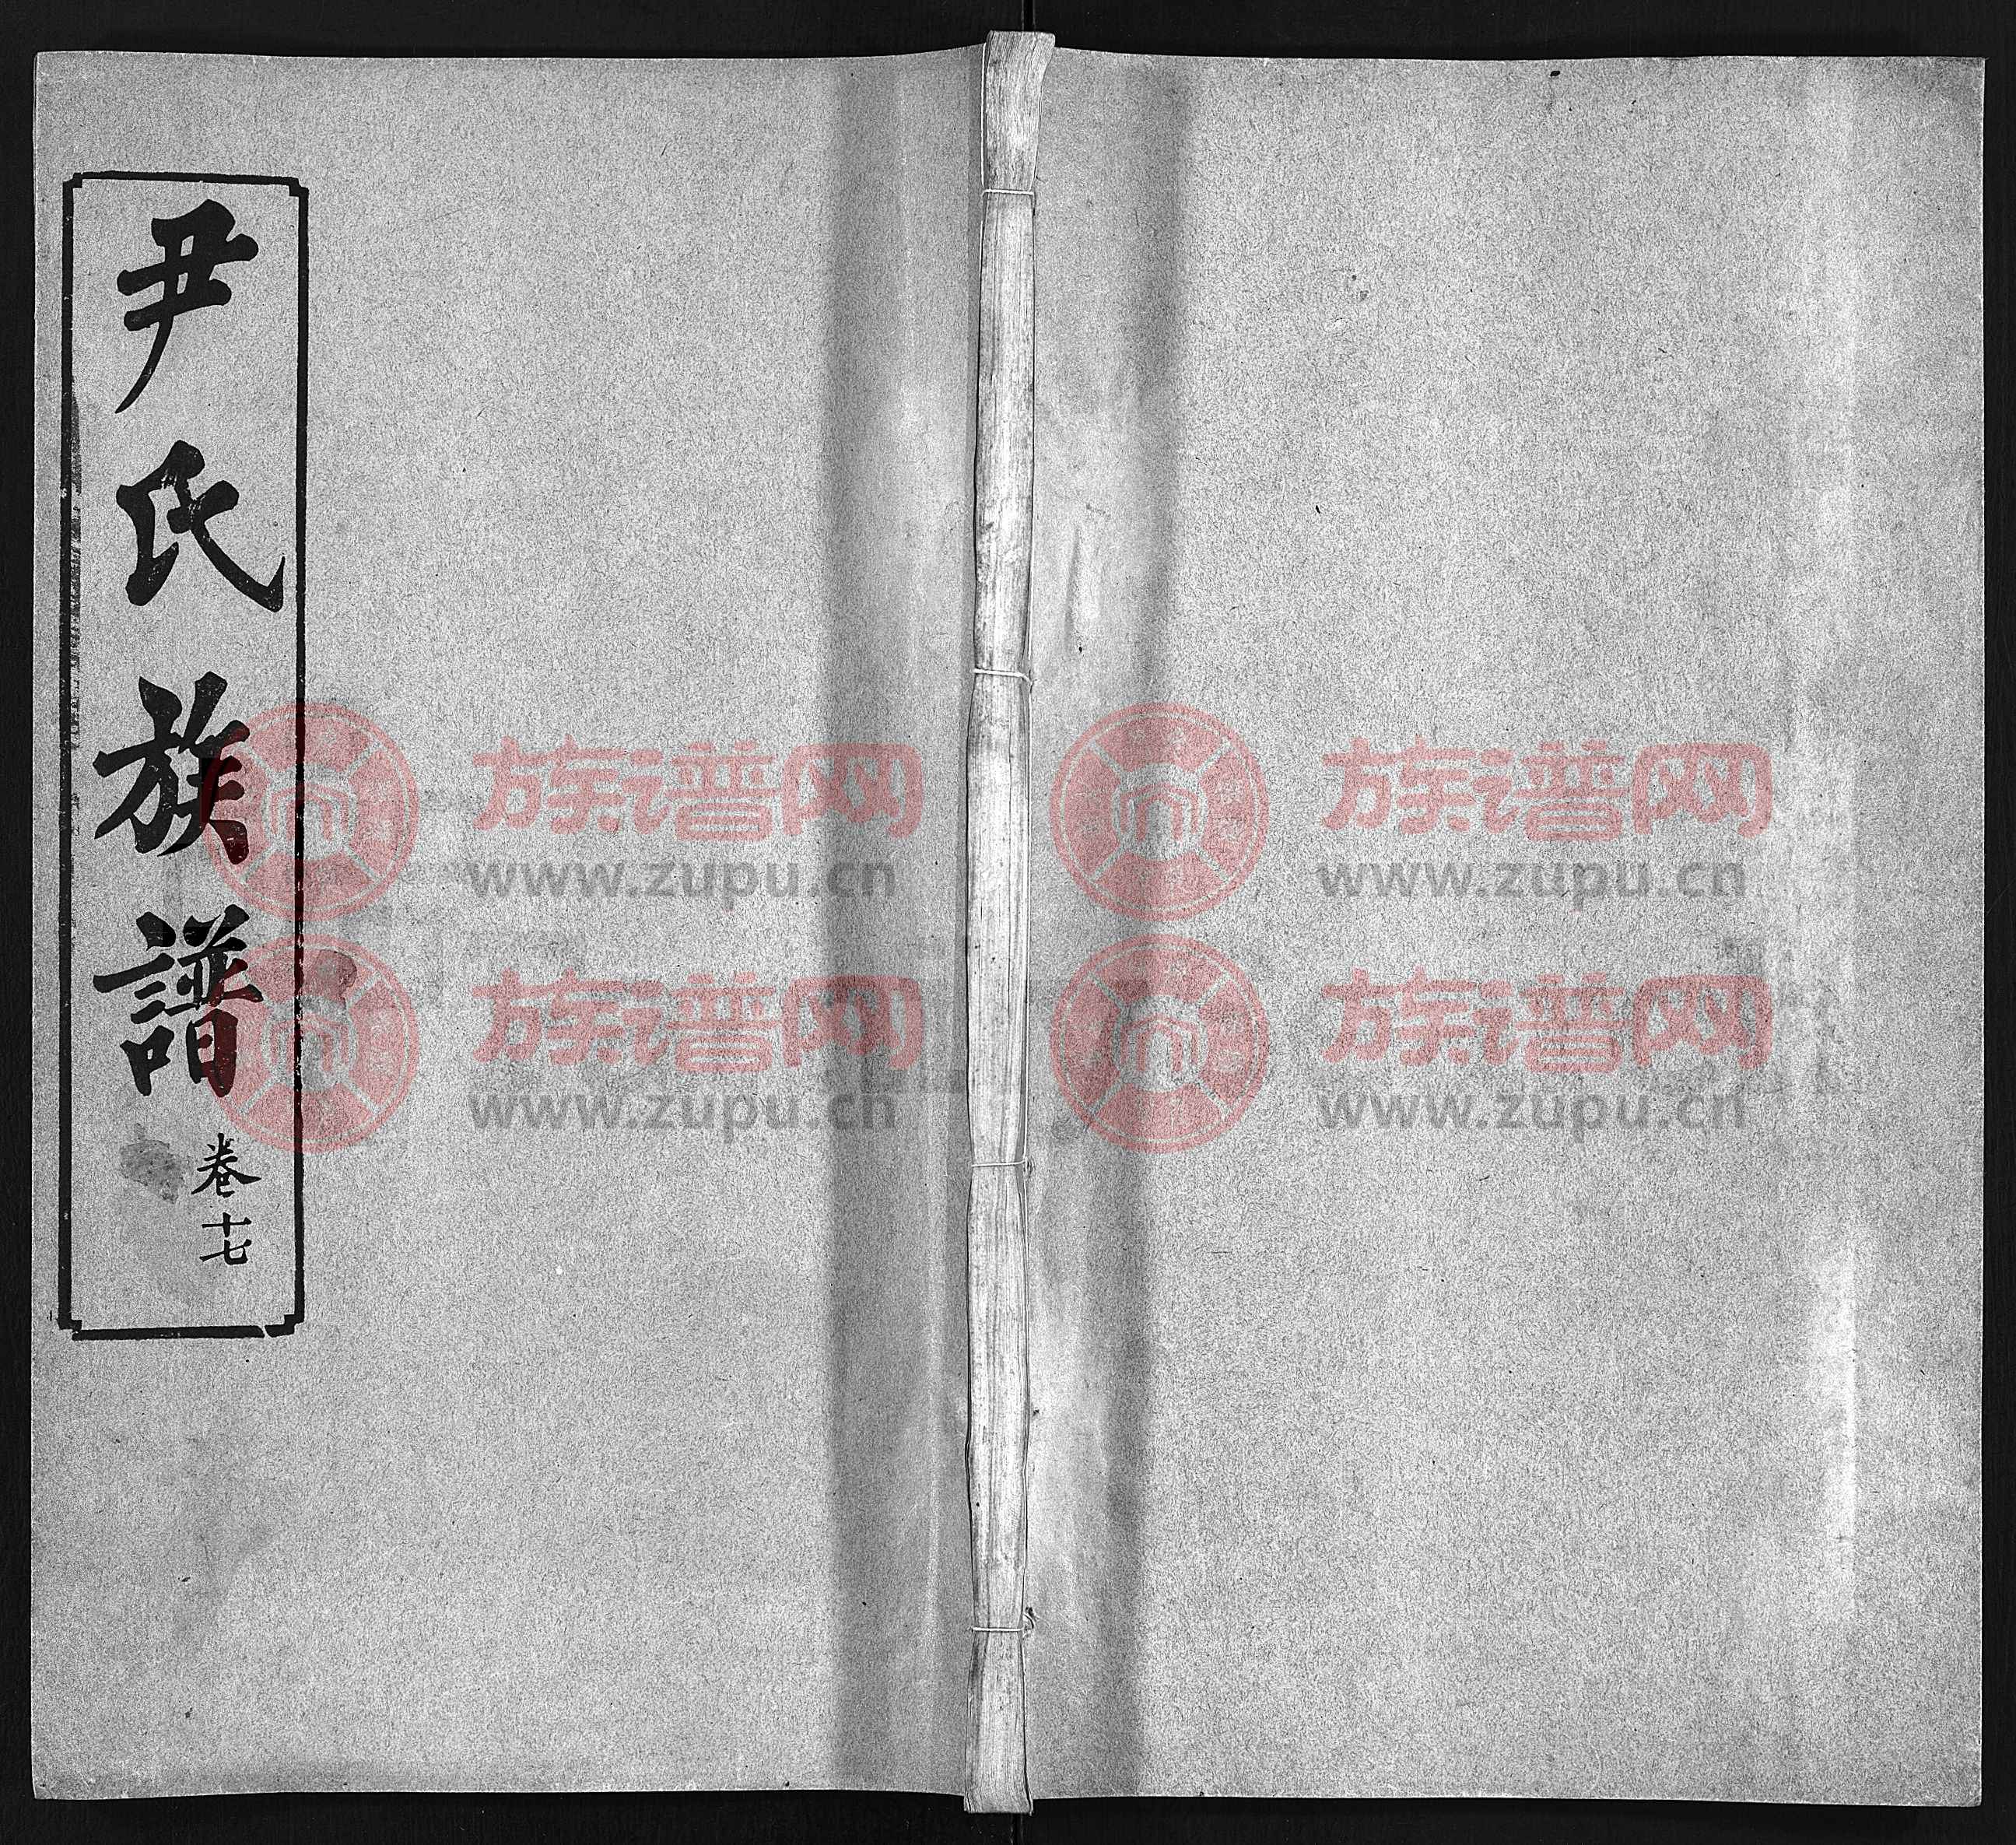 尹氏族譜
卷十七
族谱网
www.zupu.cn
族谱网
www.zupu.cn
族谱网
www.zupu.cn
族谱网
www.zupu.cn